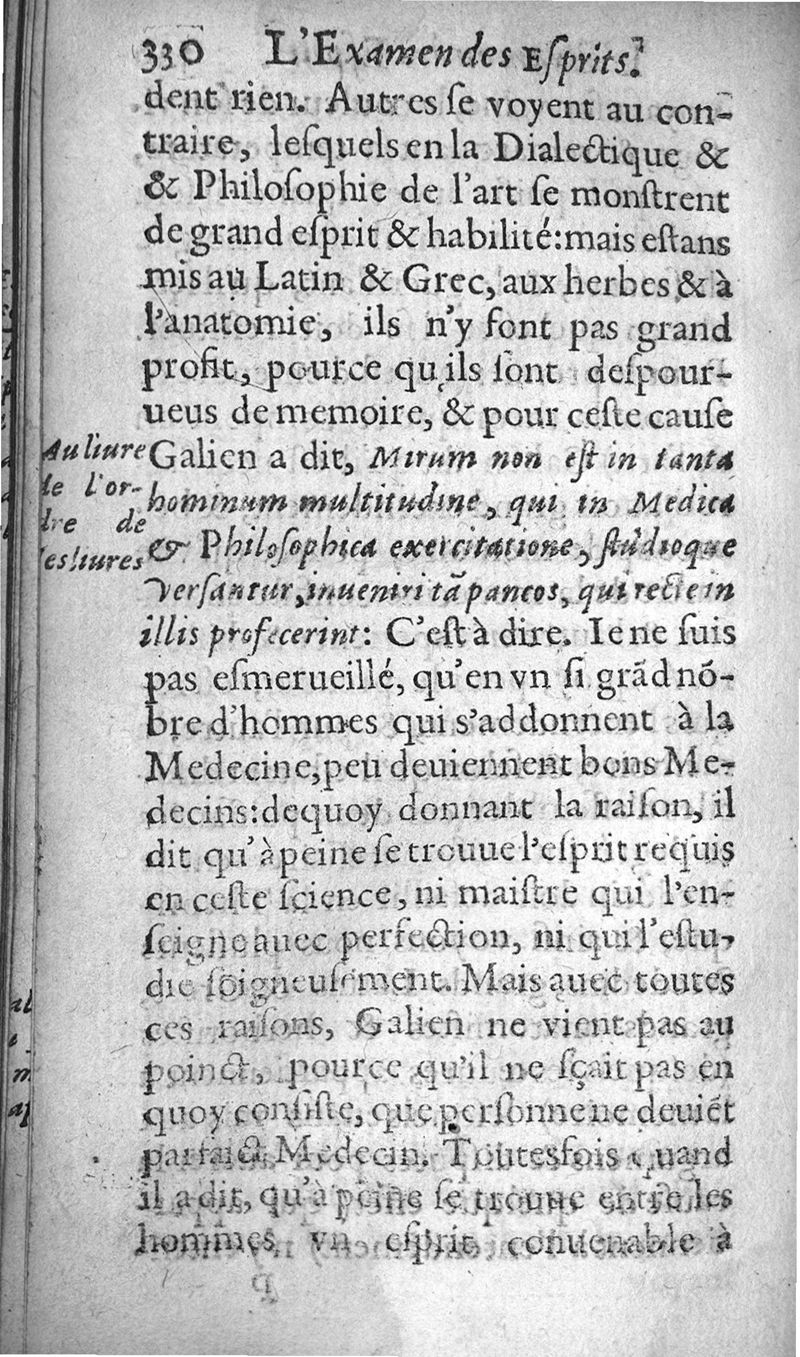 330 L'Examen des Eſprits.
dent rien. Autres ſe voyent au con-
traire, leſquels en la Dialectique &
& Philoſophie de l'art ſe monſtrent
de grand eſprit & habilité: mais eſtans
mis au Latin & Grec, aux herbes & à
l'anatomie, ils n'y font pas grand
profit, pource qu'ils ſont deſpour-
ueus de memoire, & pour ceſte cauſe
Galien a dit, Mirum non eſt in tanta
hominum multitudine, qui in Medica
& Philoſophica exercitatione, ſtudioque
verſantur, inueniri tã paucos, qui recte in
illis profecerint: C'eſt à dire. Ie ne ſuis
pas eſmerueillé, qu'en vn ſi grãd nõ-
bre d'hommes qui s'addonnent à la
Medecine, peu deuiennent bons Me-
decins: dequoy donnant la raiſon, il
dit qu'à peine ſe trouue l'eſprit requis
en ceſte ſcience, ni maiſtre qui l'en-
ſeigne auec perfection, ni qui l'eſtu-
die ſoigneuſement. Mais auec toutes
ces raiſons, Galien ne vient pas au
poinct, pource qu'il ne ſçait pas en
quoy conſiſte, que perſonne ne deuiẽt
parfaict Medecin. Toutesfois quand
il a dit, qu'à peine ſe trouue entre les
hommes vn eſprit conuenable à
Au liure
de l'or-
dre de
ſes liures
al
m